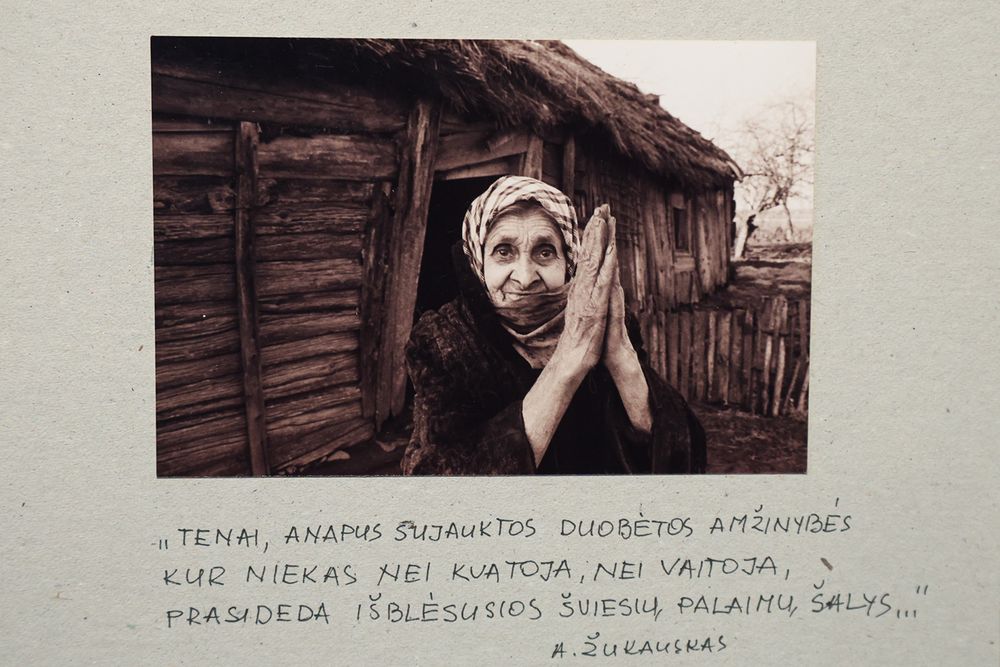 „TENAI, ANAPUS SUJAUKTOS DUOBĖTOS AMŽINYBĖS
KUR NIEKAS NEI KVATOJA, NEI VAITOJA,
PRASIDEDA IŠBLĖSUSIOS ŠVIESIŲ PALAIMŲ ŠALYS..."
A. ŽUKAUSKAS